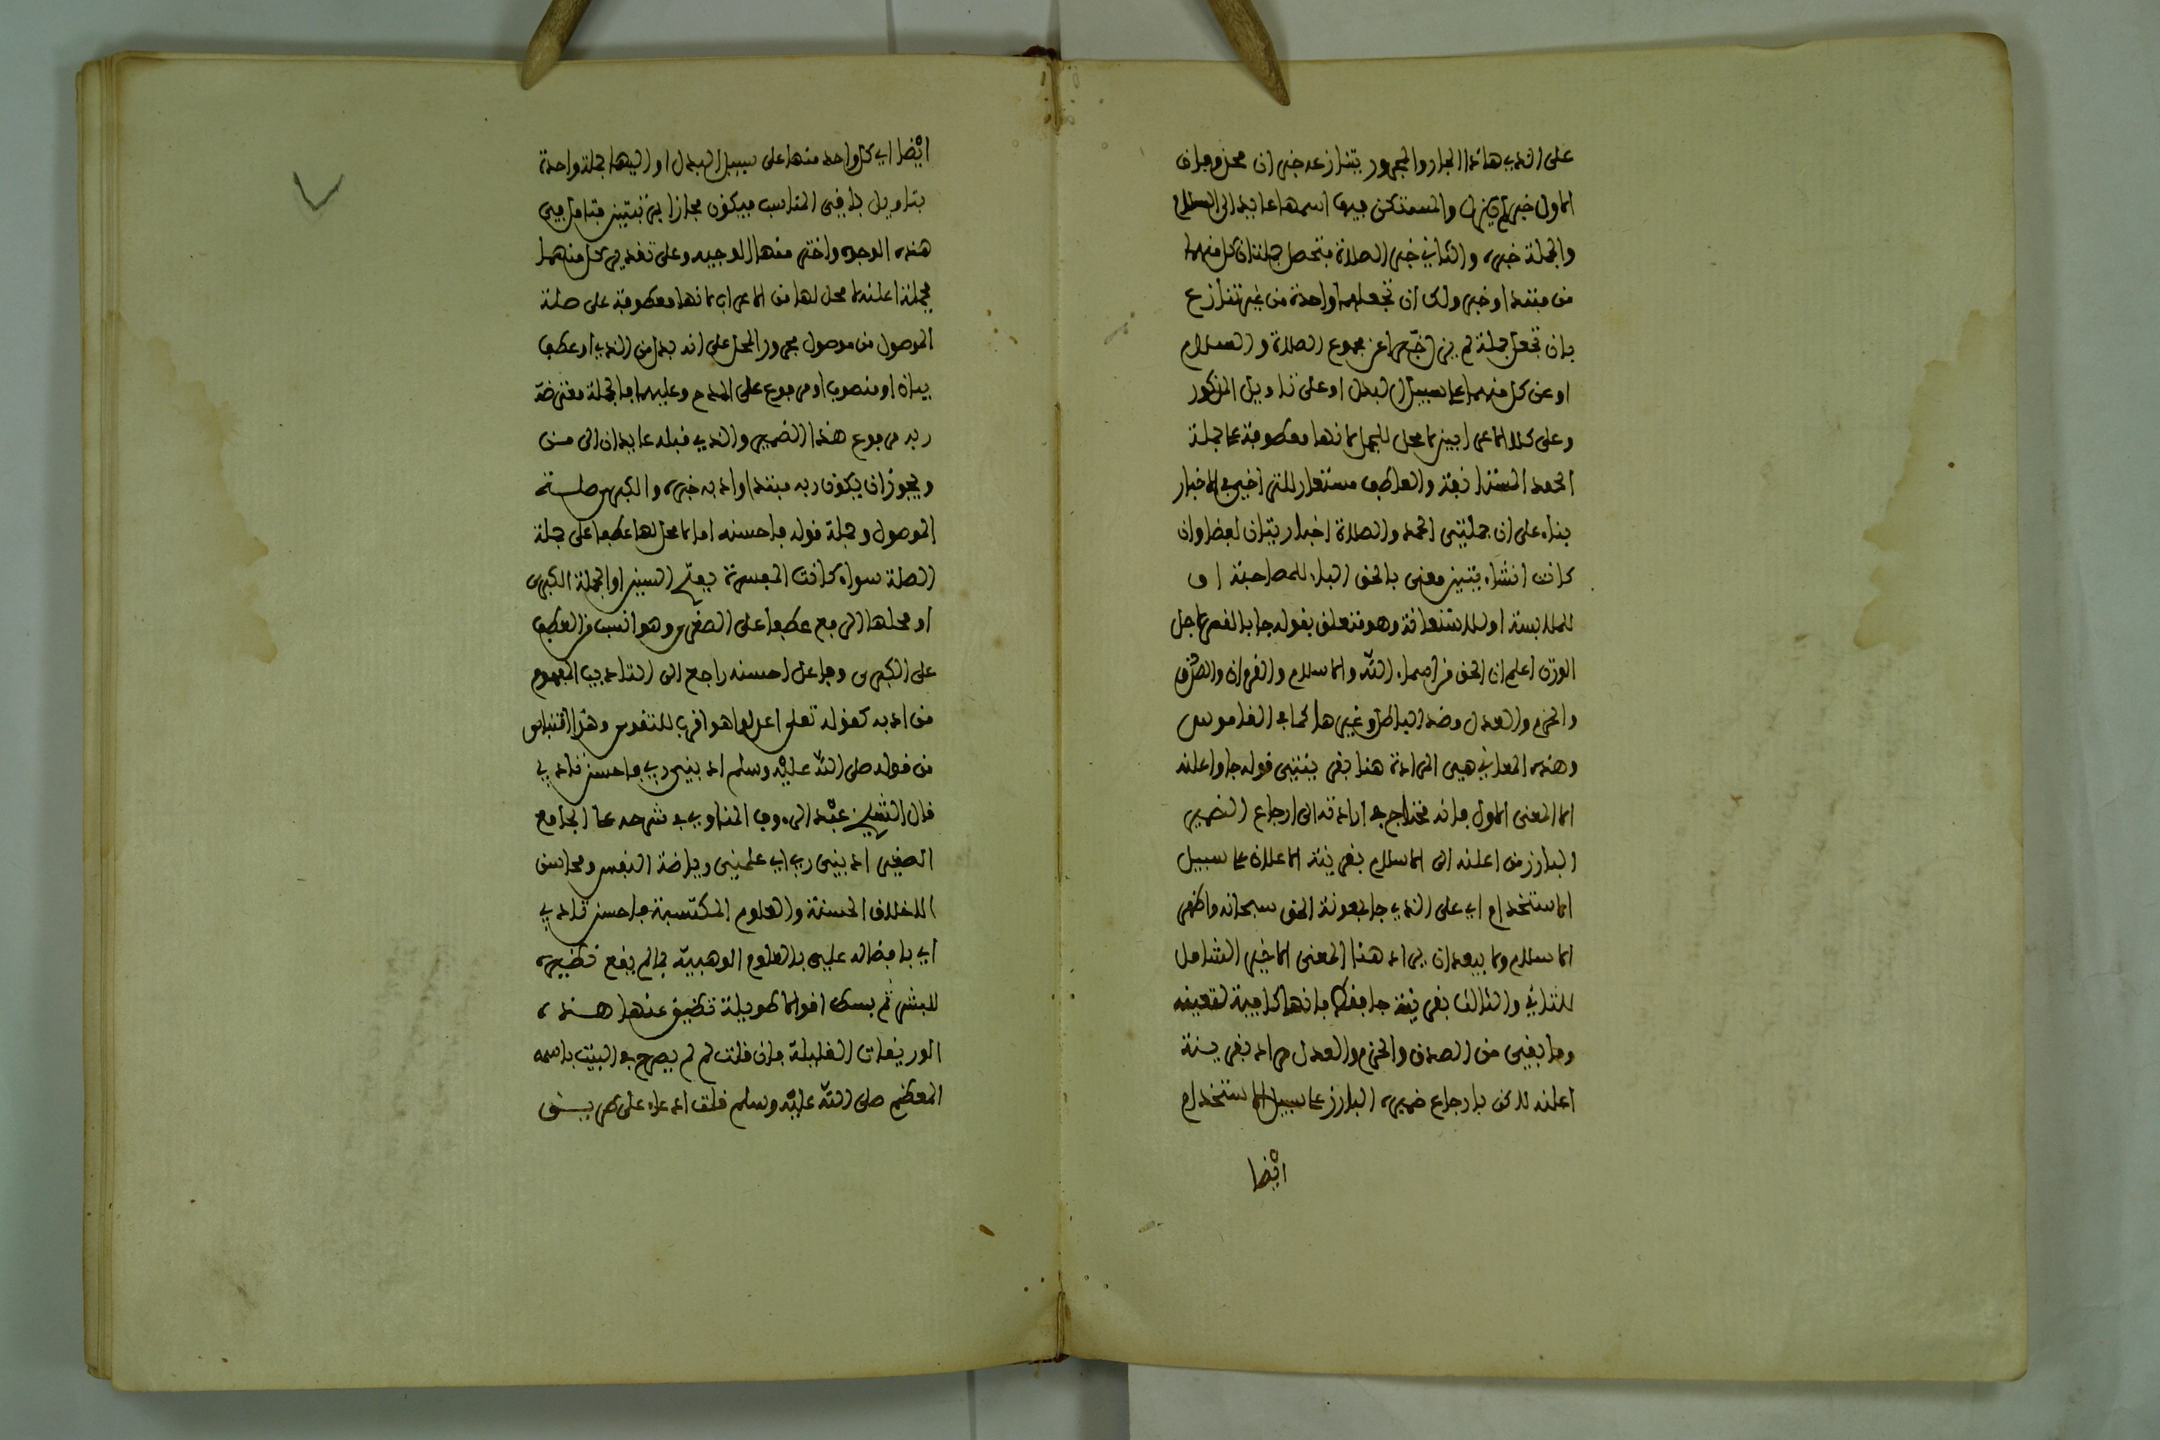 على الذي هاذا الجار والمجرور يتنازعه خبران محذوفان
الاول خبر لم يزل والمستكن فيها اسمها عايد الى السلام
والجملة خبره والثاني خبر الصلاة فتحصل جملتان كل منهما
من مبتدا وخبر ولك ان تجعلهما واحدة من غير تنازع
بان تجعل جملة لم يزل خبرا عن مجموع الصلاة والسلام
او عن كل منهما على سبيل البدل او على تاويل المذكور
وعلى كلا الاعرابين لا محل للجمل لانها معطوفة على جملة
الحمد المستانفة والعاطف مستعار للترا في الاخبار
بناء على ان جملتي الحمد والصلاة اخباريتان لفظا وان
كانت انشاءيتين معنى بالحق الباء للمصاحبة او
للملابسة او للاستعانة وهو متعلق بقوله جا بالقصر لاجل
الوزن اعلم ان الحق من اسماء الله والاسلام والقرءان والصدق
والحزم والعدل وضد الباطل وغيرها كما في القاموس
وهذه المعاني هي المرادة هنا بقرينتي قوله جا واعلنه
الا المعنى الاول فانه محتاج في ارادته الى ارجاع الضمير
البارز من اعلنه الى الاسلام بقرينة الاعلان على سبيل
الاستخدام اي على الذي جا بمعونة الحق سبحانه واظهر
الاسلام ولا يبعد ان يراد هذا المعنى الاخير الشامل
للثاني والثالث بقرينة جا فقط فانها كافية لتعيينه
وما بقي من الصدق والحزم والعدل مراد بقرينة
اعلنه لاكن بارجاع ضميره البارز على سبيل الاستخدام
ايضا
ايضا اي كل واحد منها على سبيل البدل او اليها جملة واحدة
بتاويل باقي المناسب فيكون مجازا بقرينتين فتامل في
هذه الوجوه واختر منها الوجيه وعلى تقدير كل منهما
فجملة اعلنه لا محل لها من الاعراب لانها معطوفة على صلة
الموصول من موصول مجرور المحل على انه بدل من الذي او عطف
بيان او منصوب او مرفوع على المدح وعليهما فالجملة معترضة
ربه مرفوع هذا الضمير والذي قبله عايدان الى من
ويجوز ان يكون ربه مبتدا وادبه خبره والكبرى صلة
الموصول وجملة قوله فاحسنه اما لا محل لها عطفا على جملة
الصلة سواء كانت المفسرة بفتح السين او الجملة الكبرى
او محلها الرفع عطفا على الصغرى وهو انسب من العطف
على الكبرى وفاعل احسنه راجع الى التاديب المفهوم
من ادبه كقوله تعلى اعدلوا هو اقرب للتقوى وهذا اقتباس
من قوله صلى الله عليه وسلم ادبني ربي فاحسن تاديبي
قال الشيخ عبد الرءوف المناوي في شرحه على الجامع
الصغير ادبني ربي اي علمني رياضة النفس ومحاسن
الاخلاق الحسنة والعلوم المكتسبة فاحسن تاديبي
اي بافضاله علي بالعلوم الوهبية مما لم يقع نظيره
للبشر ثم بسط اقوالا طويلة تضيق عنها هذه
الوريقات القليلة فان قلت لم لم يصرح في البيت باسمه
المعظم صلى الله عليه وسلم قلت ادعاء على طريق